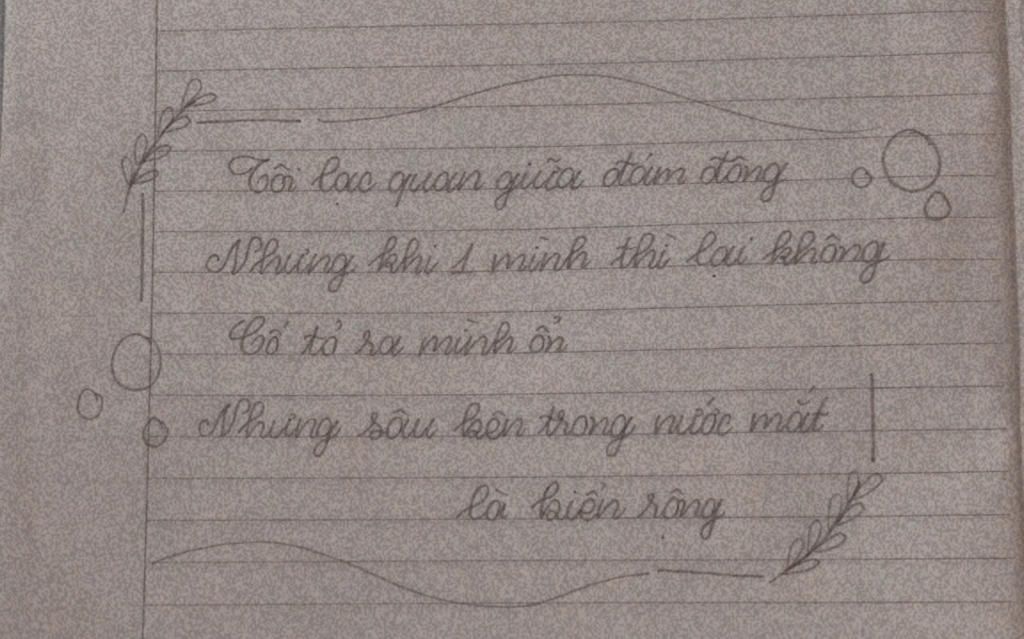 Tôi lạc quan giữa đám đông
Nhưng khi 1 mình thì lại không
Cố tỏ ra mình ổn
Nhưng sâu bên trong nước mắt
là biển rộng